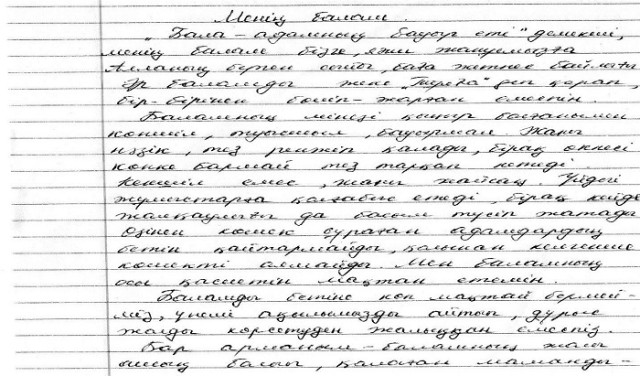 Менің балам.
„Бала – адамның бауыр еті" демекші,
менің балам бізге, яғни жанұямызға
Алланың берген сыйы, баға жетпес байлығы
Әр баламды жеке „Тұлға" деп қарап,
бір-бірінен бөліп-жарған емеспін.
Баламның мінезі қыңыр болғанымен
көпшіл, турашыл, бауырмал. Жаны
нәзік, тез ренжіп қалады, бірақ өкпесі
көпке бармай тез тарқап кетеді.
Кекшіл емес, жаны жайсаң. Үйдегі
жұмыстарға қолғабыс етеді, бірақ кейде
жалқаулығы да басым түсіп жатады
Өзінен көмек сұраған адамдардың
бетін қайтармайды, қолынан келгенше
көмекті аямайды. Мен баламның
осы қасиетін мақтан етемін.
Баламды бетіне көп мақтай бермей-
міз, үнемі ақылымызды айтып, дұрыс
жолды көрсетуден жалыққан емеспіз.
Бар арманым – баламның жолы
ашық болып, қалаған маманды-